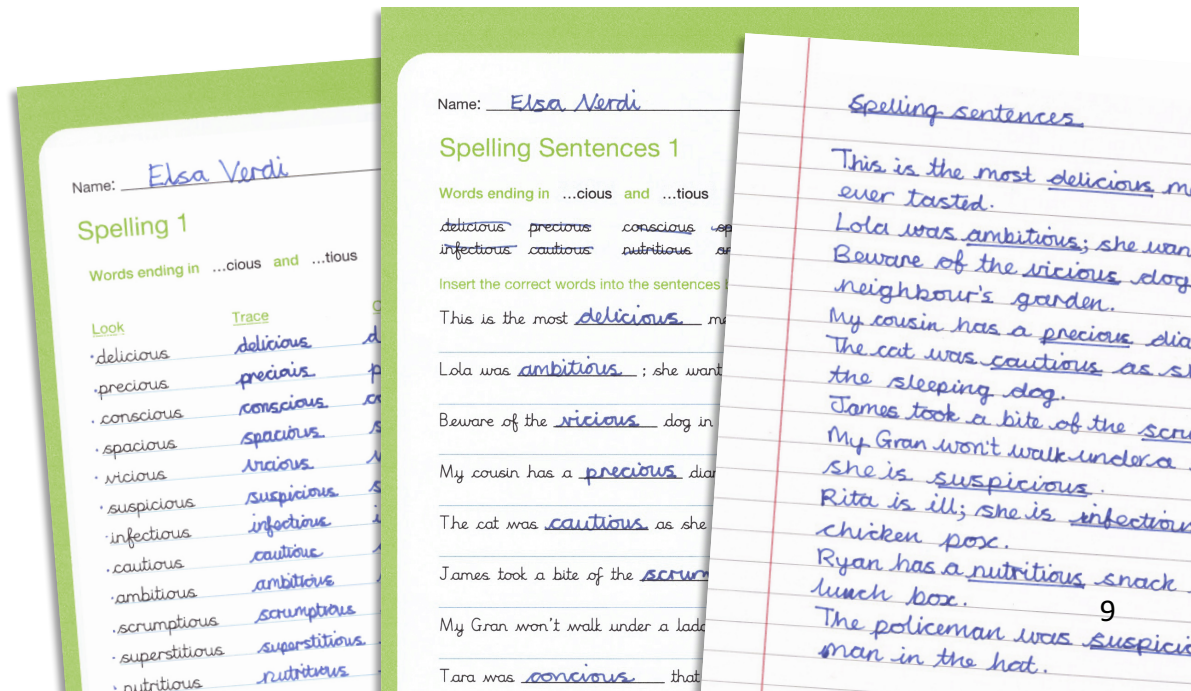 Name: Elsa Verdi
Spelling 1
Words ending in ...cious and ...tious
Look Trace
delicious delicious
precious precious
conscious conscious
spacious spacious
vicious vicious
suspicious suspicious
infectious infectious
cautious cautious
ambitious ambitious
scrumptious scrumptious
superstitious superstitious
nutritious nutritious
Name: Elsa Verdi
Spelling Sentences 1
Words ending in ...cious and ...tious
delicious precious conscious sp
infectious cautious nutritious
Insert the correct words into the sentences
This is the most delicious me
Lola was ambitious ; she want
Beware of the vicious dog in
My cousin has a precious diam
The cat was cautious as she
James took a bite of the scrum
My Gran won't walk under a ladd
Tara was concious that
Spelling sentences
This is the most delicious m
ever tasted.
Lola was ambitious; she wan
Beware of the vicious dog
neighbour's garden.
My cousin has a precious dia
The cat was cautious as s
the sleeping dog.
James took a bite of the scru
My Gran won't walk under a
she is suspicious.
Rita is ill; she is infectious
chicken pox.
Ryan has a nutritious snack
lunch box.
The policeman was suspicio
man in the hat.
9